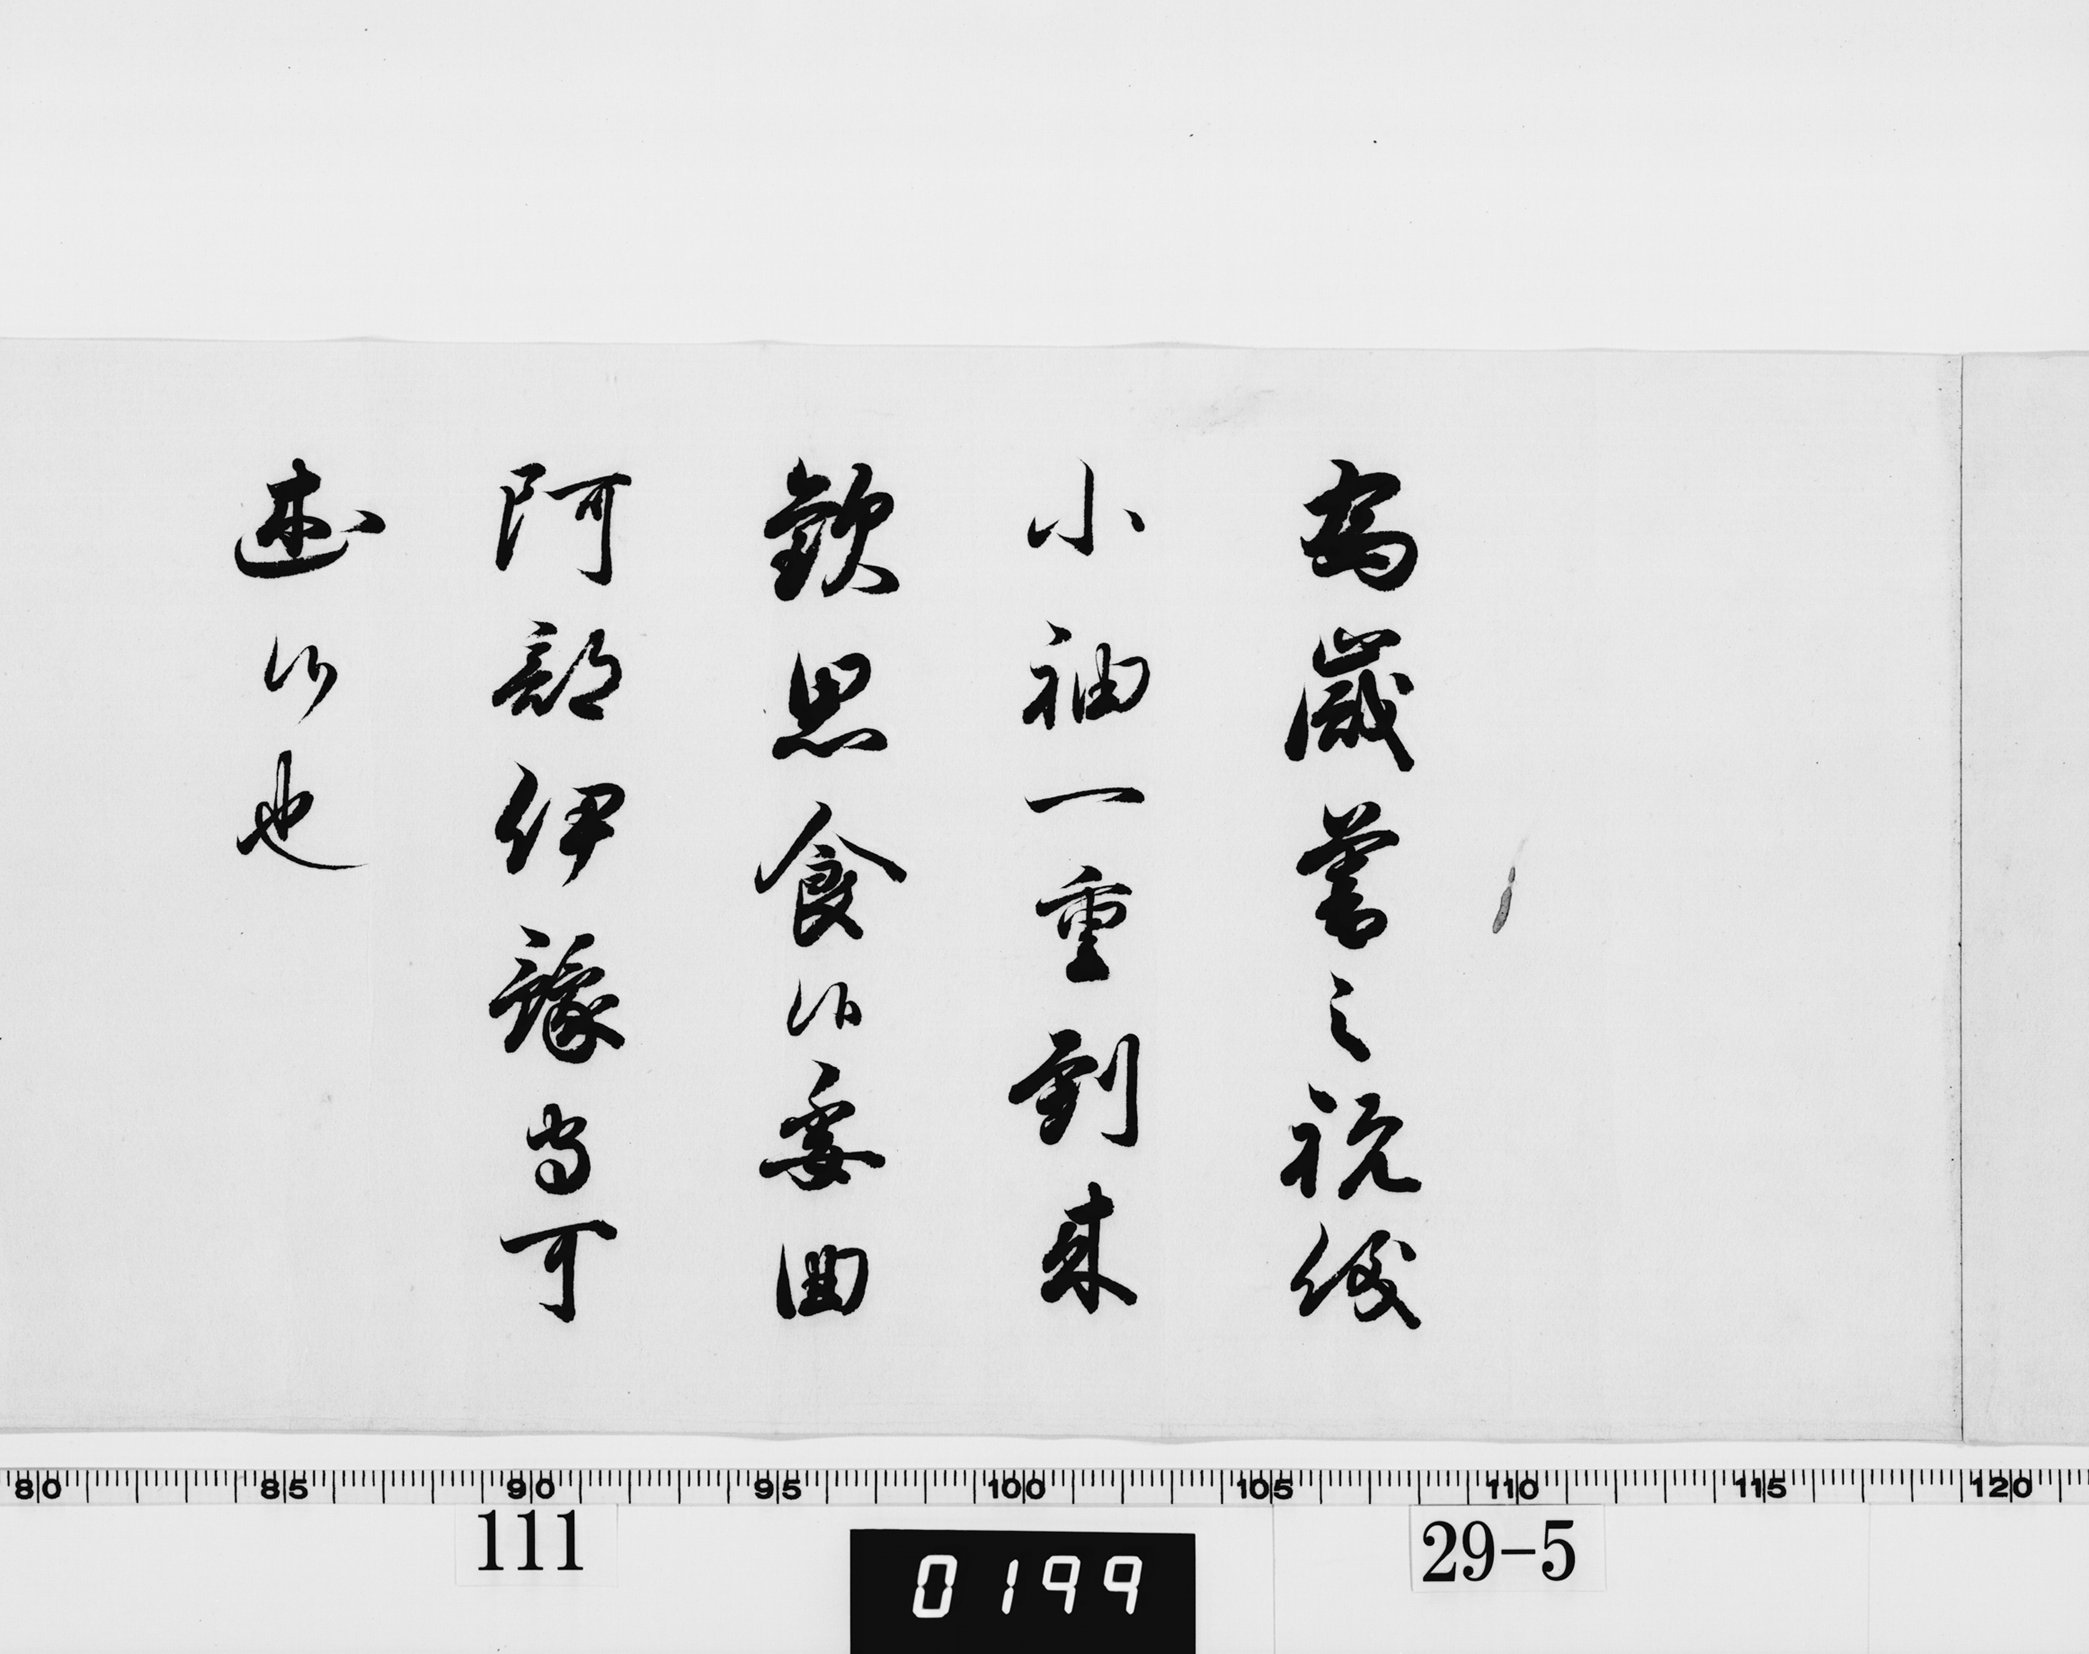 為歳暮之祝儀
小袖一重到来
歓思食候委曲
阿部伊豫守可
述候也
80 85 90 95 100 105 110 115 120
111
0199
29-5